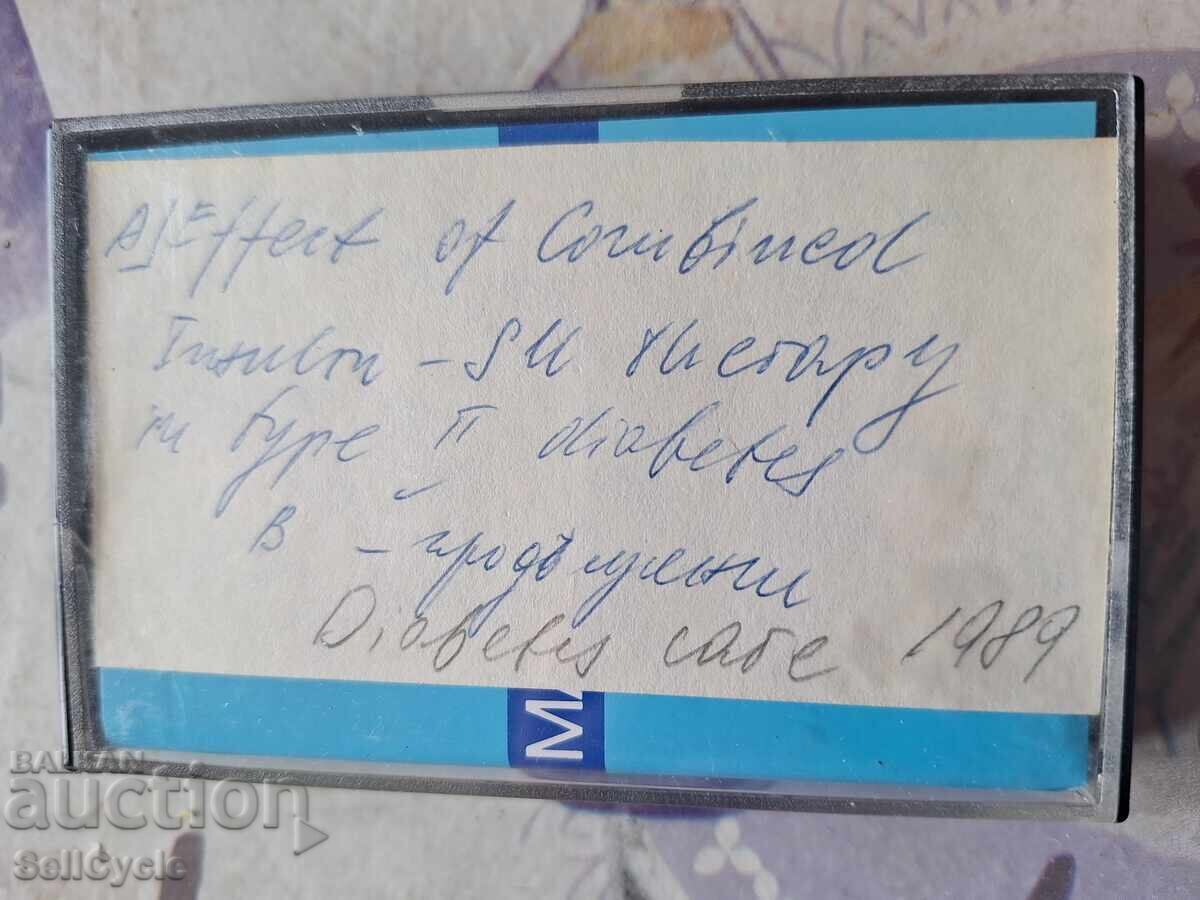 A) Effect of Combined
Insulin - SU therapy
in type II diabetes
B - продължение
Diabetes care 1989
MA
BALKAN
auction
SellCycle